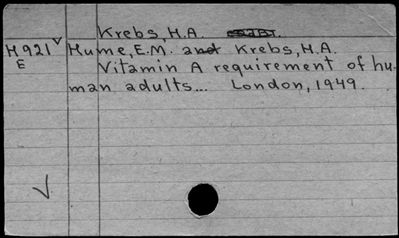 Krebs, H.A.
H921 Hume, E.M. and Krebs, H.A.
E Vitamin A requirement of hu-
man adults... London, 1949.